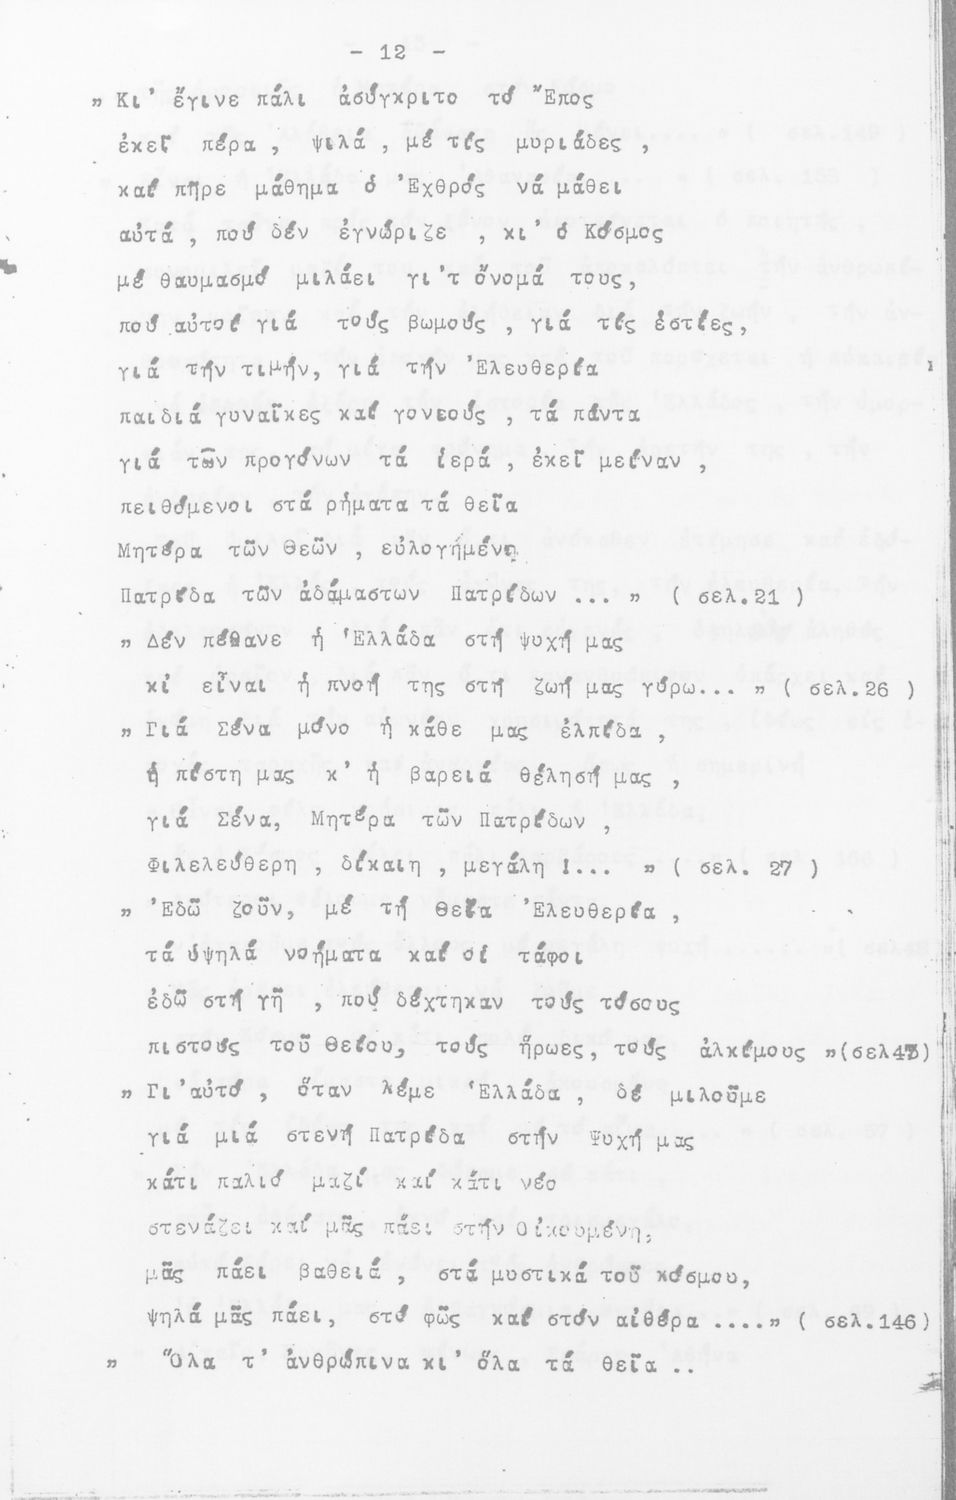 - 12 -
„ Κι' ἔγινε πάλι ἀσύγκριτο τό Ἔπος
ἐκεῖ πέρα , ψιλά , μέ τίς μυριάδες ,
καί πῆρε μάθημα ὁ Ἐχθρός νά μάθει
αὐτά , πού δέν ἐγνώριζε , κι ὁ Κόσμος
μέ θαυμασμό μιλάει γι'τ ὄνομά τους,
πού αὐτοί γιά τούς βωμούς , γιά τίς ἑστίες,
γιά τήν τιμήν, γιά τήν Ἐλευθερία
παιδιά γυναῖκες καί γονιούς , τά πάντα
γιά τῶν προγόνων τά ἱερά , ἐκεῖ μείναν ,
πειθόμενοι στά ρήματα τά θεῖα
Μητέρα τῶν Θεῶν , εὐλογημένη
Πατρίδα τῶν ἀδάμαστων Πατρίδων ... „ ( σελ.21 )
„ Δέν πέθανε ἡ Ἑλλάδα στή ψυχή μας
κι εἶναι ἡ πνοή της στή ζωή μας γύρω... „ ( σελ.26 )
„ Γιά Σένα μόνο ἡ κάθε μας ἐλπίδα ,
ἡ πίστη μας κ' ἡ βαρειά θέλησή μας ,
γιά Σένα, Μητέρα τῶν Πατρίδων ,
Φιλελεύθερη , δίκαιη , μεγάλη !... „ ( σελ. 27 )
„ Ἐδῶ ζοῦν, μέ τή Θεία Ἐλευθερία ,
τά ὑψηλά νοήματα καί οἱ τάφοι
ἐδῶ στή γῆ , πού δέχτηκαν τούς τόσους
πιστούς τοῦ Θείου, τούς ἥρωες, τούς ἀλκίμους „(σελ43)
„ Γι'αὐτό , ὅταν λέμε Ἑλλάδα , δέ μιλοῦμε
γιά μιά στενή Πατρίδα στήν Ψυχή μας
κάτι παλιό μαζί καί κάτι νέο
στενάζει καί μᾶς πάει στήν Οἰκουμένη,
μᾶς πάει βαθειά , στά μυστικά τοῦ κόσμου,
ψηλά μᾶς πάει, στό φῶς καί στόν αἰθέρα ....„ ( σελ.146)
„ Ὅλα τ' ἀνθρώπινα κι' ὅλα τά θεῖα ..